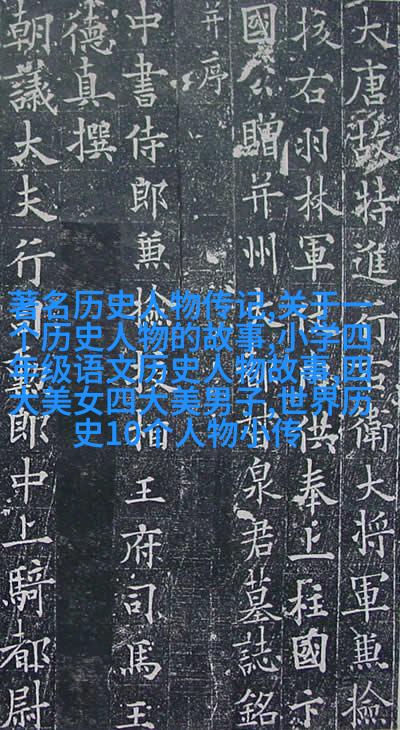 大唐故特進行右衛大將軍兼檢
校右羽林軍仗供奉上柱國卞
國公贈并州都督泉君墓誌銘
并序
中書侍郎兼檢校相王府司馬王
德真撰
朝議大夫行司勳郎中上騎都尉
著名历史人物传记,关于一
个历史人物的故事,小学四
年级语文历史人物故事,四
大美女四大美男子,世界历
史10个人物小传